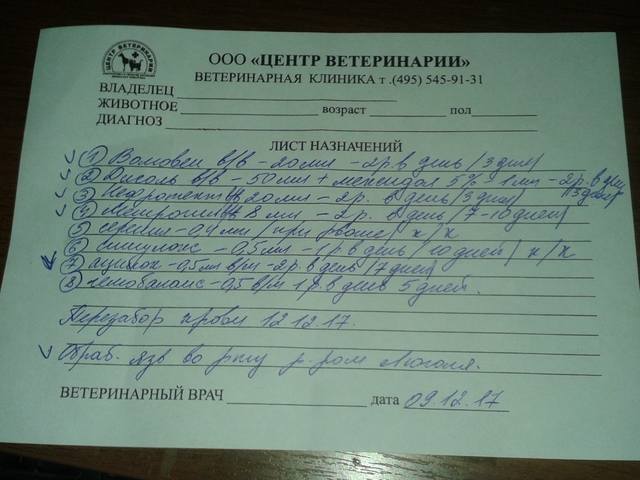 ЦЕНТР ВЕТЕРИНАРИИ
ООО «ЦЕНТР ВЕТЕРИНАРИИ»
ВЕТЕРИНАРНАЯ КЛИНИКА т .(495) 545-91-31
ВЛАДЕЛЕЦ
ЖИВОТНОЕ возраст пол
ДИАГНОЗ
ЛИСТ НАЗНАЧЕНИЙ
1 Волювен в/в - 20 мл - 2 р. в день /3 дня/
2 Дисоль в/в - 50 мл + мексидол 5% 1 мл - 2 р. в день
/3 дня/
3 20 мл - 2 р. в день /3 дня/
4 8 мл - 2 р. в день /7-10 дней/
5 серения - 0,4 мл /при рвоте/ п/к
6 - 0,5 мл - 1 р в день /10 дней/ п/к
7 - 0,5 мл в/м - 2 р. в день /7 дней/
8 гемобаланс - 0,5 в/м 1 р в день 5 дней.
Перезабор крови 12.12.17.
Обраб. язв во рту р-ром Люголя.
ВЕТЕРИНАРНЫЙ ВРАЧ дата 09.12.17